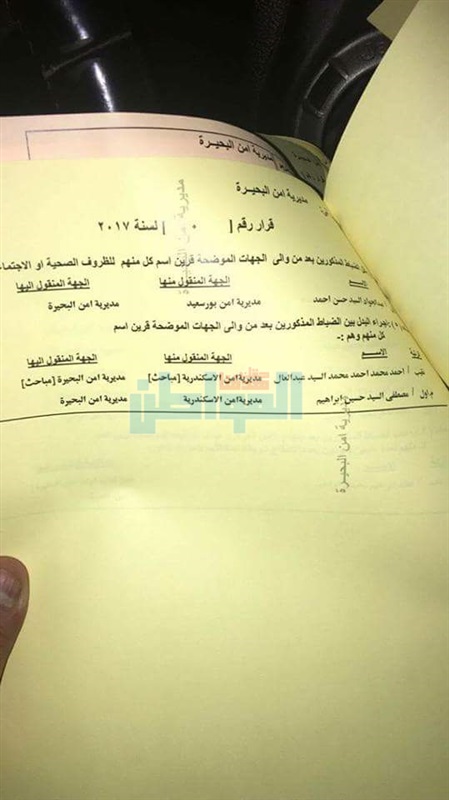 مديرية امن البحيرة
مديرية امن البحيرة
قرار رقم [ ٠ ] لسنة ٢٠١٧
الضباط المذكورين بعد من والى الجهات الموضحة قرين اسم كل منهم للظروف الصحية او الاجتماعية
الجهة المنقول منها الجهة المنقول اليها
السيد حسن احمد مديرية امن بورسعيد مديرية امن البحيرة
اجراء البدل بين الضباط المذكورين بعد من والى الجهات الموضحة قرين اسم
كل منهم وهم :-
الاســم الجهة المنقول منها الجهة المنقول اليها
نقيب / احمد محمد احمد محمد السيد عبدالعال مديرية امن الاسكندرية [مباحث] مديرية امن البحيرة [مباحث]
م.اول / مصطفى السيد حسين ابراهيم مديرية امن الاسكندرية مديرية امن البحيرة
مديرية امن البحيرة
مديرية امن البحيرة
المواطن